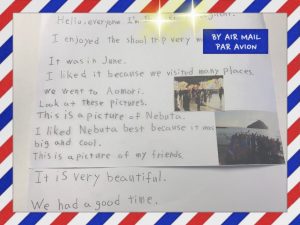 Hello, everyone I'm
I enjoyed the shool trip very
BY AIR MAIL
PAR AVION
It was in June.
I liked it because we visited many places.
We went to Aomori.
Look at these pictures.
This is a picture of Nebuta.
I liked Nebuta best because it was
big and cool.
This is a picture of my friends.
It is very beautiful.
We had a good time.